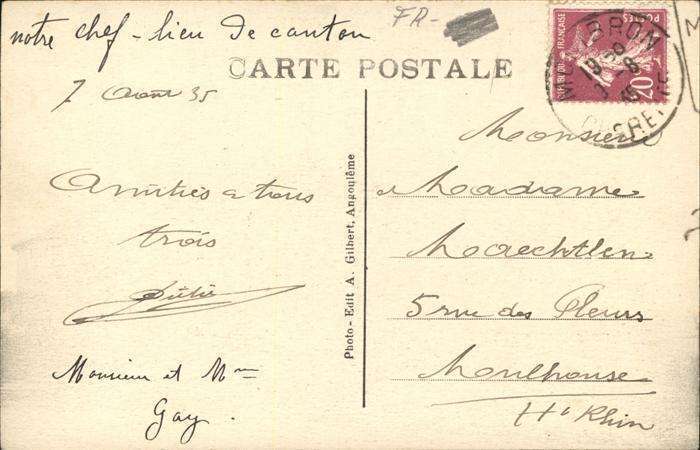 notre chef-lieu de canton
FR-
CARTE POSTALE
7 Août 35
Amitiés à tous
trois
Monsieur et Mme
Gay.
Photo - Edit A. Gilbert, Angoulême
BRON
19
RÉPUBLIQUE FRANÇAISE
POSTES
20
Monsieur
et Madame
Maechtlen
5 rue des Fleurs
Moulhouse
Ht Rhin